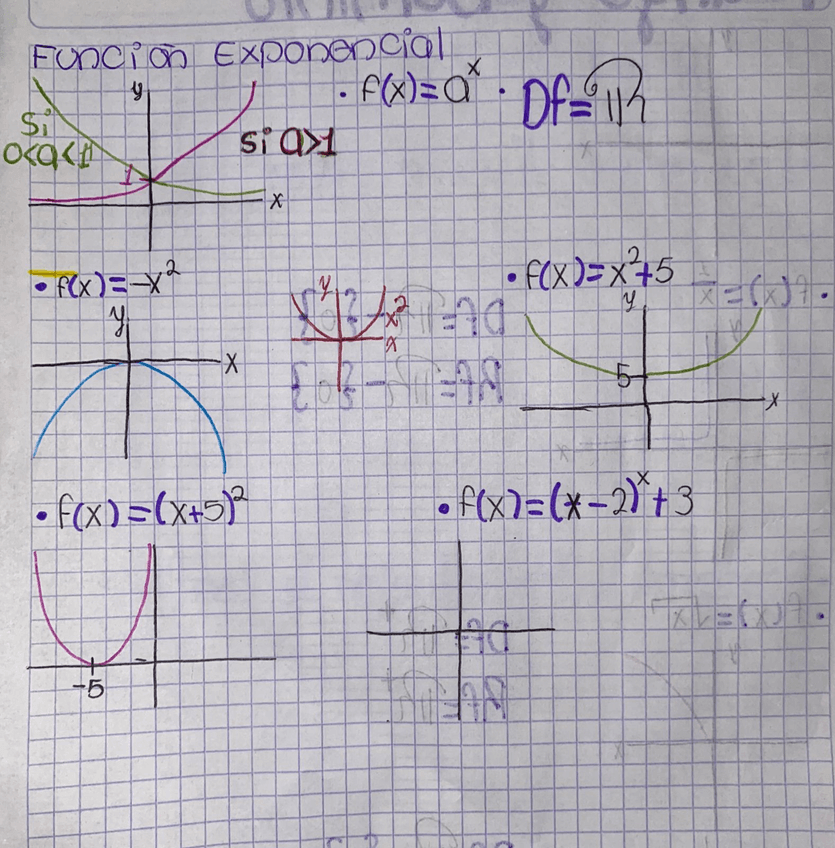 Función Exponencial
• f(x)=a^x • Df=ℝ
y
Si
0<a<1
si a>1
1
x
• f(x)=-x²
y
x
y
x²
x
• f(x)=x²+5
y
5
x
• f(x)=(x+5)²
-5
• f(x)=(x-2)^x+3